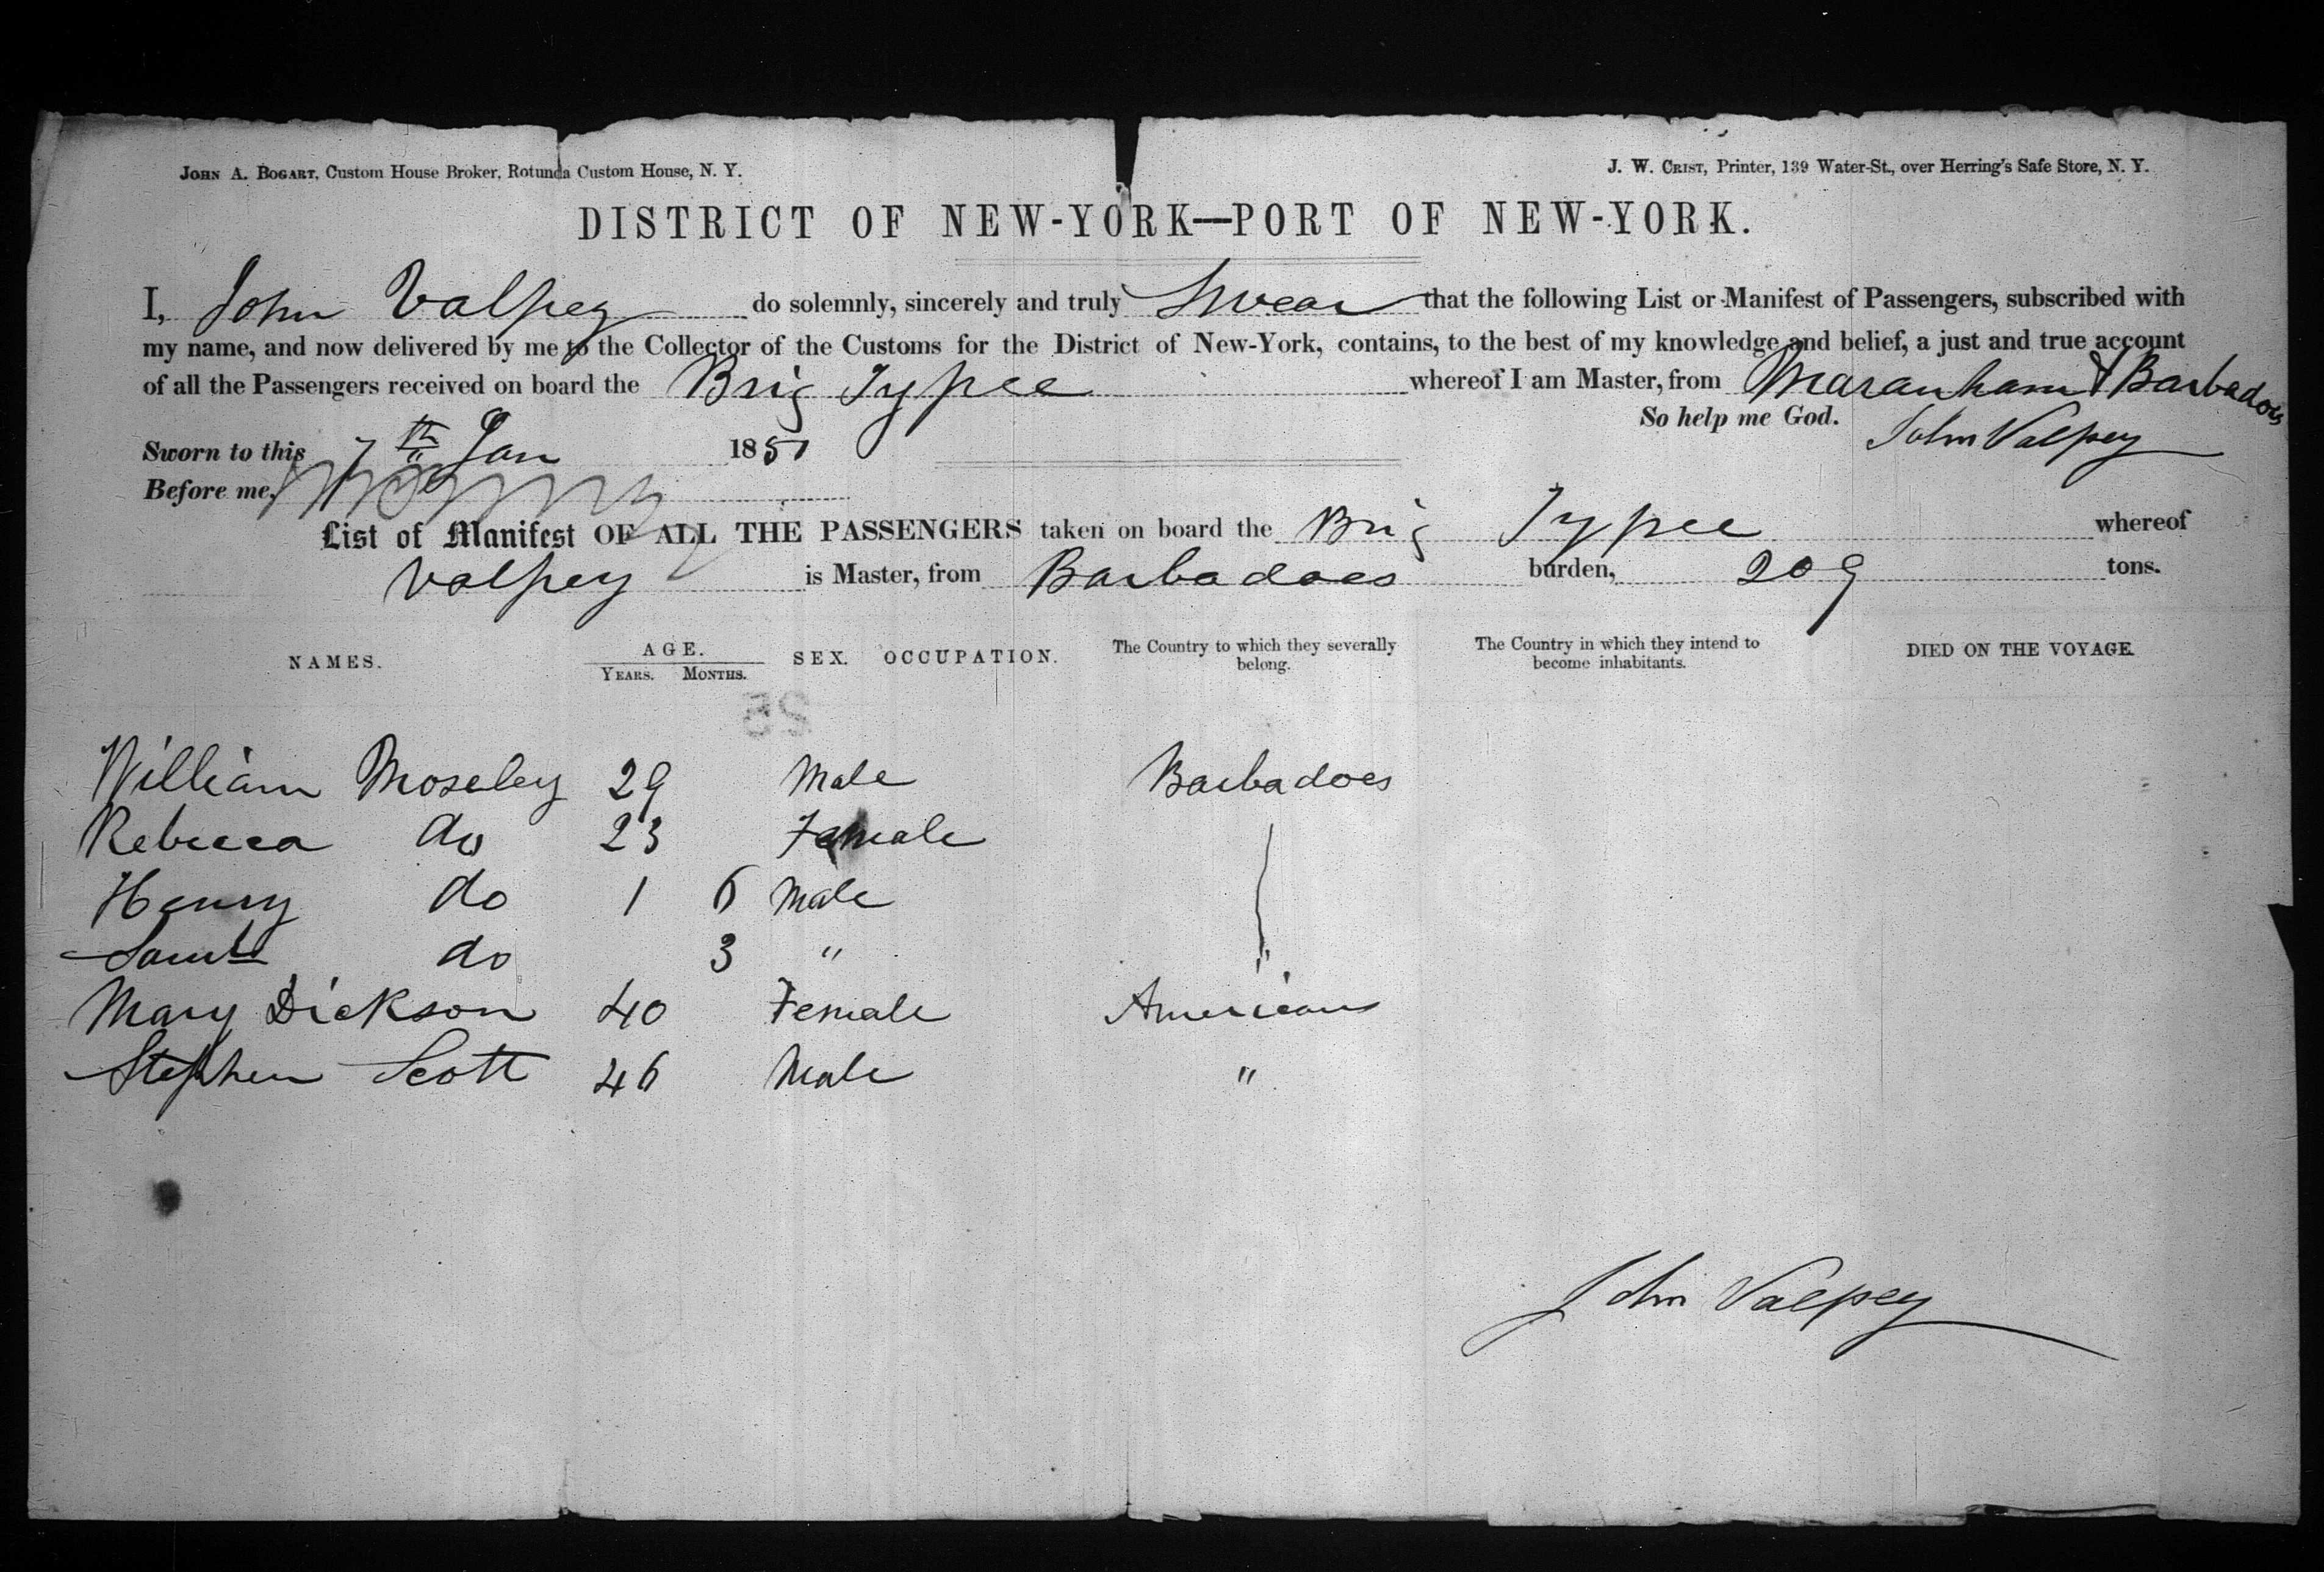 JOHN A. BOGART, Custom House Broker, Rotunda Custom House, N. Y.
J. W. CRIST, Printer, 139 Water-St., over Herring's Safe Store, N. Y.
DISTRICT OF NEW-YORK—PORT OF NEW-YORK.
I, John Valpey do solemnly, sincerely and truly Swear that the following List or Manifest of Passengers, subscribed with
my name, and now delivered by me to the Collector of the Customs for the District of New-York, contains, to the best of my knowledge and belief, a just and true account
of all the Passengers received on board the Brig Typee whereof I am Master, from Maranham & Barbadoes
So help me God.
Sworn to this 7th Jan 1851 John Valpey
Before me,
List of Manifest OF ALL THE PASSENGERS taken on board the Brig Typee whereof
Valpey is Master, from Barbadoes burden, 209 tons.
NAMES. AGE. SEX. OCCUPATION. The Country to which they severally belong. The Country in which they intend to become inhabitants. DIED ON THE VOYAGE.
YEARS. MONTHS.
25
William Moseley 29 Male Barbadoes
Rebecca do 23 Female
Henry do 1 6 Male
Saml do 3 " "
Mary Dickson 40 Female Americans
Stephen Scott 46 Male "
John Valpey